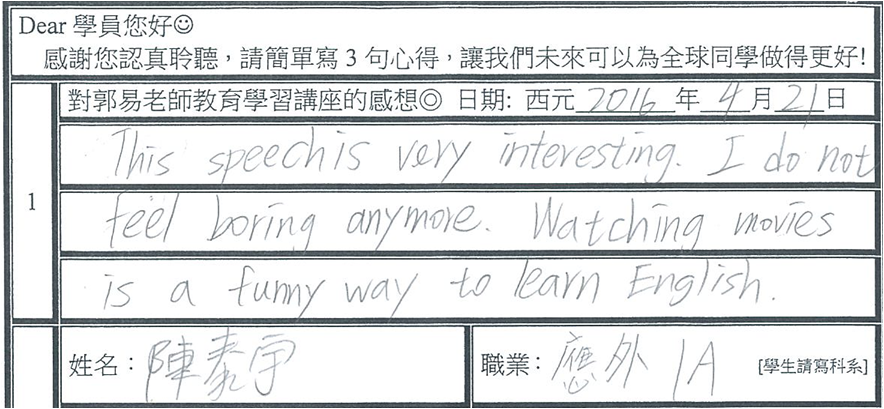 Dear 學員您好☺
感謝您認真聆聽，請簡單寫 3 句心得，讓我們未來可以為全球同學做得更好!
1
對郭易老師教育學習講座的感想◎ 日期: 西元 2016 年 4 月 21 日
This speech is very interesting. I do not
feel boring anymore. Watching movies
is a funny way to learn English.
姓名：陳泰宇
職業：應外 1A [學生請寫科系]